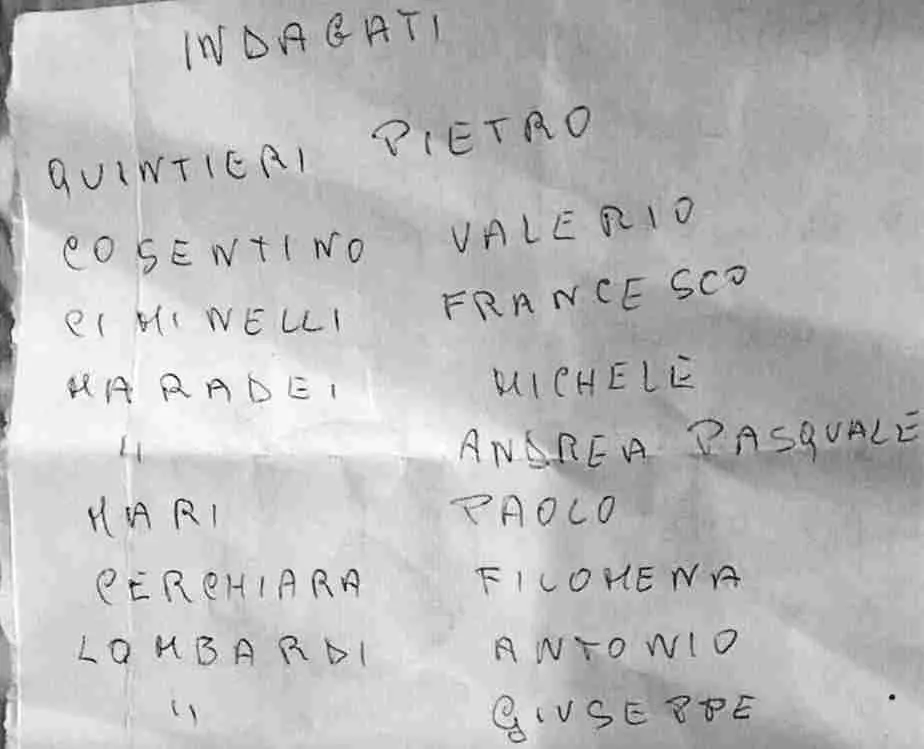 INDAGATI
QUINTIERI PIETRO
COSENTINO VALERIO
CIMINELLI FRANCESCO
MARADEI MICHELE
" ANDREA PASQUALE
MARI PAOLO
CERCHIARA FILOMENA
LOMBARDI ANTONIO
" GIUSEPPE